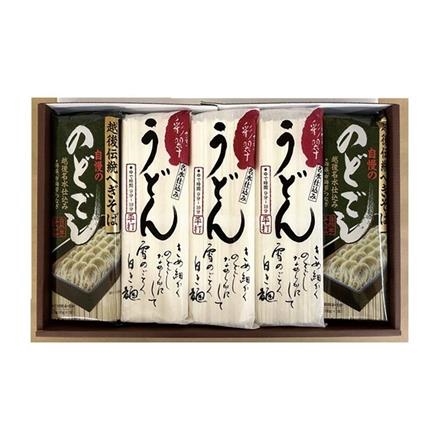 越後伝統へぎそば
自慢の
のどごし
越後名水仕込み
彩翠
名水仕込み
うどん
平打
きめ細かく
のどごし
なめらかにして
雪のごとく
白き麺
彩翠
名水仕込み
うどん
平打
きめ細かく
のどごし
なめらかにして
雪のごとく
白き麺
彩翠
名水仕込み
うどん
平打
きめ細かく
のどごし
なめらかにして
雪のごとく
白き麺
越後伝統へぎそば
自慢の
のどごし
越後名水仕込み